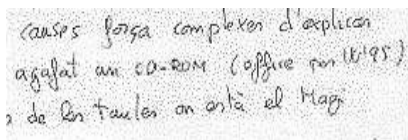 causes força complexes d'explicar
agafat un CD-ROM (office per W'95)
de les taules on està el Magi